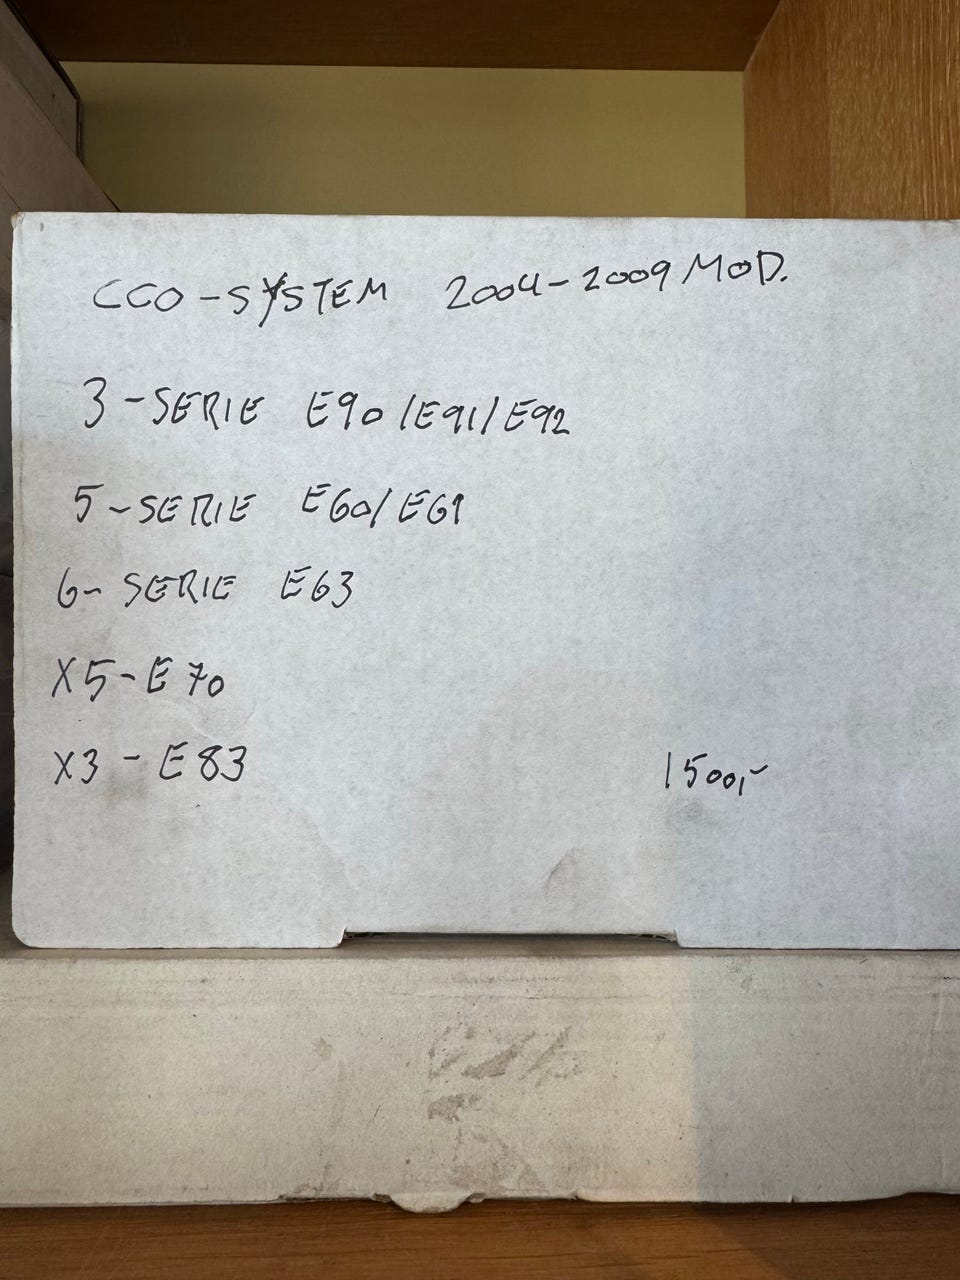 CCO-SYSTEM 2004-2009 MOD.
3-SERIE E90/E91/E92
5-SERIE E60/E61
6-SERIE E63
X5-E70
X3-E83
1500,-